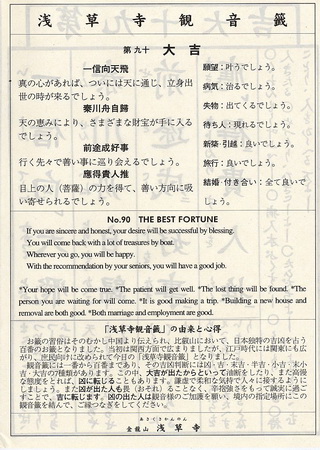 浅草寺観音籤
第九十 大吉
一信向天飛
真の心があれば、ついには天に通じ、立身出
世の時が来るでしょう。
秦川舟自歸
天の恵みにより、さまざまな財宝が手に入る
でしょう。
前途成好事
行く先々で善い事に巡り会えるでしょう。
應得貴人推
目上の人（菩薩）の力を得て、善い方向に吸
い寄せられるでしょう。
願望：叶うでしょう。
病気：治るでしょう。
失物：出てくるでしょう。
待ち人：現れるでしょう。
新築・引越：良いでしょう。
旅行：良いでしょう。
結婚・付き合い：全て良いで
しょう。
No.90 THE BEST FORTUNE
If you are sincere and honest, your desire will be successful by blessing.
You will come back with a lot of treasures by boat.
Wherever you go, you will be happy.
With the recommendation by your seniors, you will have a good job.
*Your hope will be come true. *The patient will get well. *The lost thing will be found. *The
person you are waiting for will come. *It is good making a trip. *Building a new house and
removal are both good. *Both marriage and employment are good.
「浅草寺観音籤」の由来と心得
お籤の習俗はそのむかし中国より伝えられ、比叡山において、日本独特の吉凶を占う
百番のお籤となりました。当初は関西方面で広まりましたが、江戸時代には関東にも広
がり、庶民向けに改められて今日の「浅草寺観音籤」となりました。
観音籤には一番から百番まであり、その吉凶判断には凶・吉・末吉・半吉・小吉・末小
吉・大吉の7種類があります。この中、大吉が出たからといって油断をしたり、また高慢
な態度をとれば、凶に転じることもあります。謙虚で柔和な気持で人々に接するように
しましょう。また凶が出た人も畏（おそ）れることなく、辛抱強さをもって誠実に過ご
すことで、吉に転じます。凶の出た人は観音様のご加護を願い、境内の指定場所にこの
観音籤を結んで、ご縁つなぎをしてください。
あさくさかんのん
金龍山 浅草寺